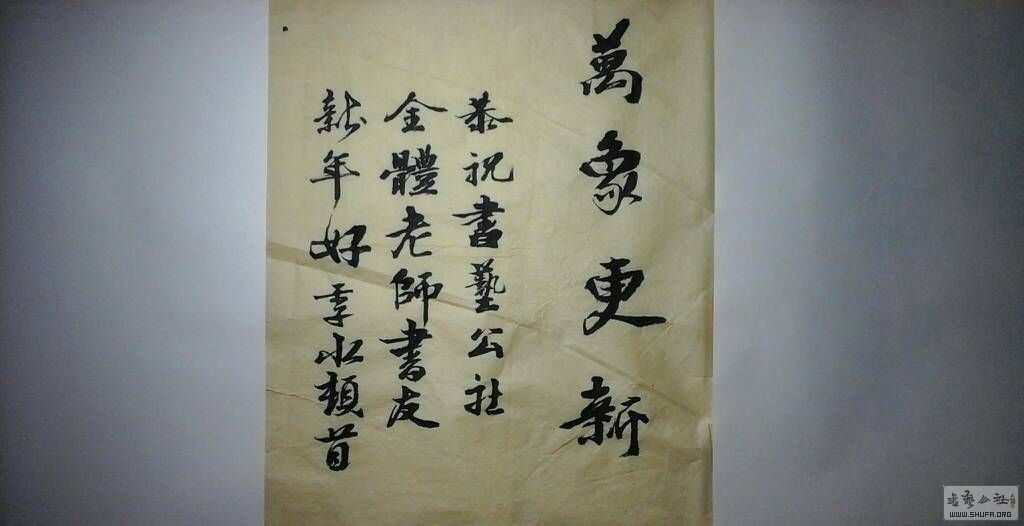 萬象更新
恭祝書藝公社
全體老師書友
新年好 季水頓首
書藝公社
WWW.SHUFA.ORG